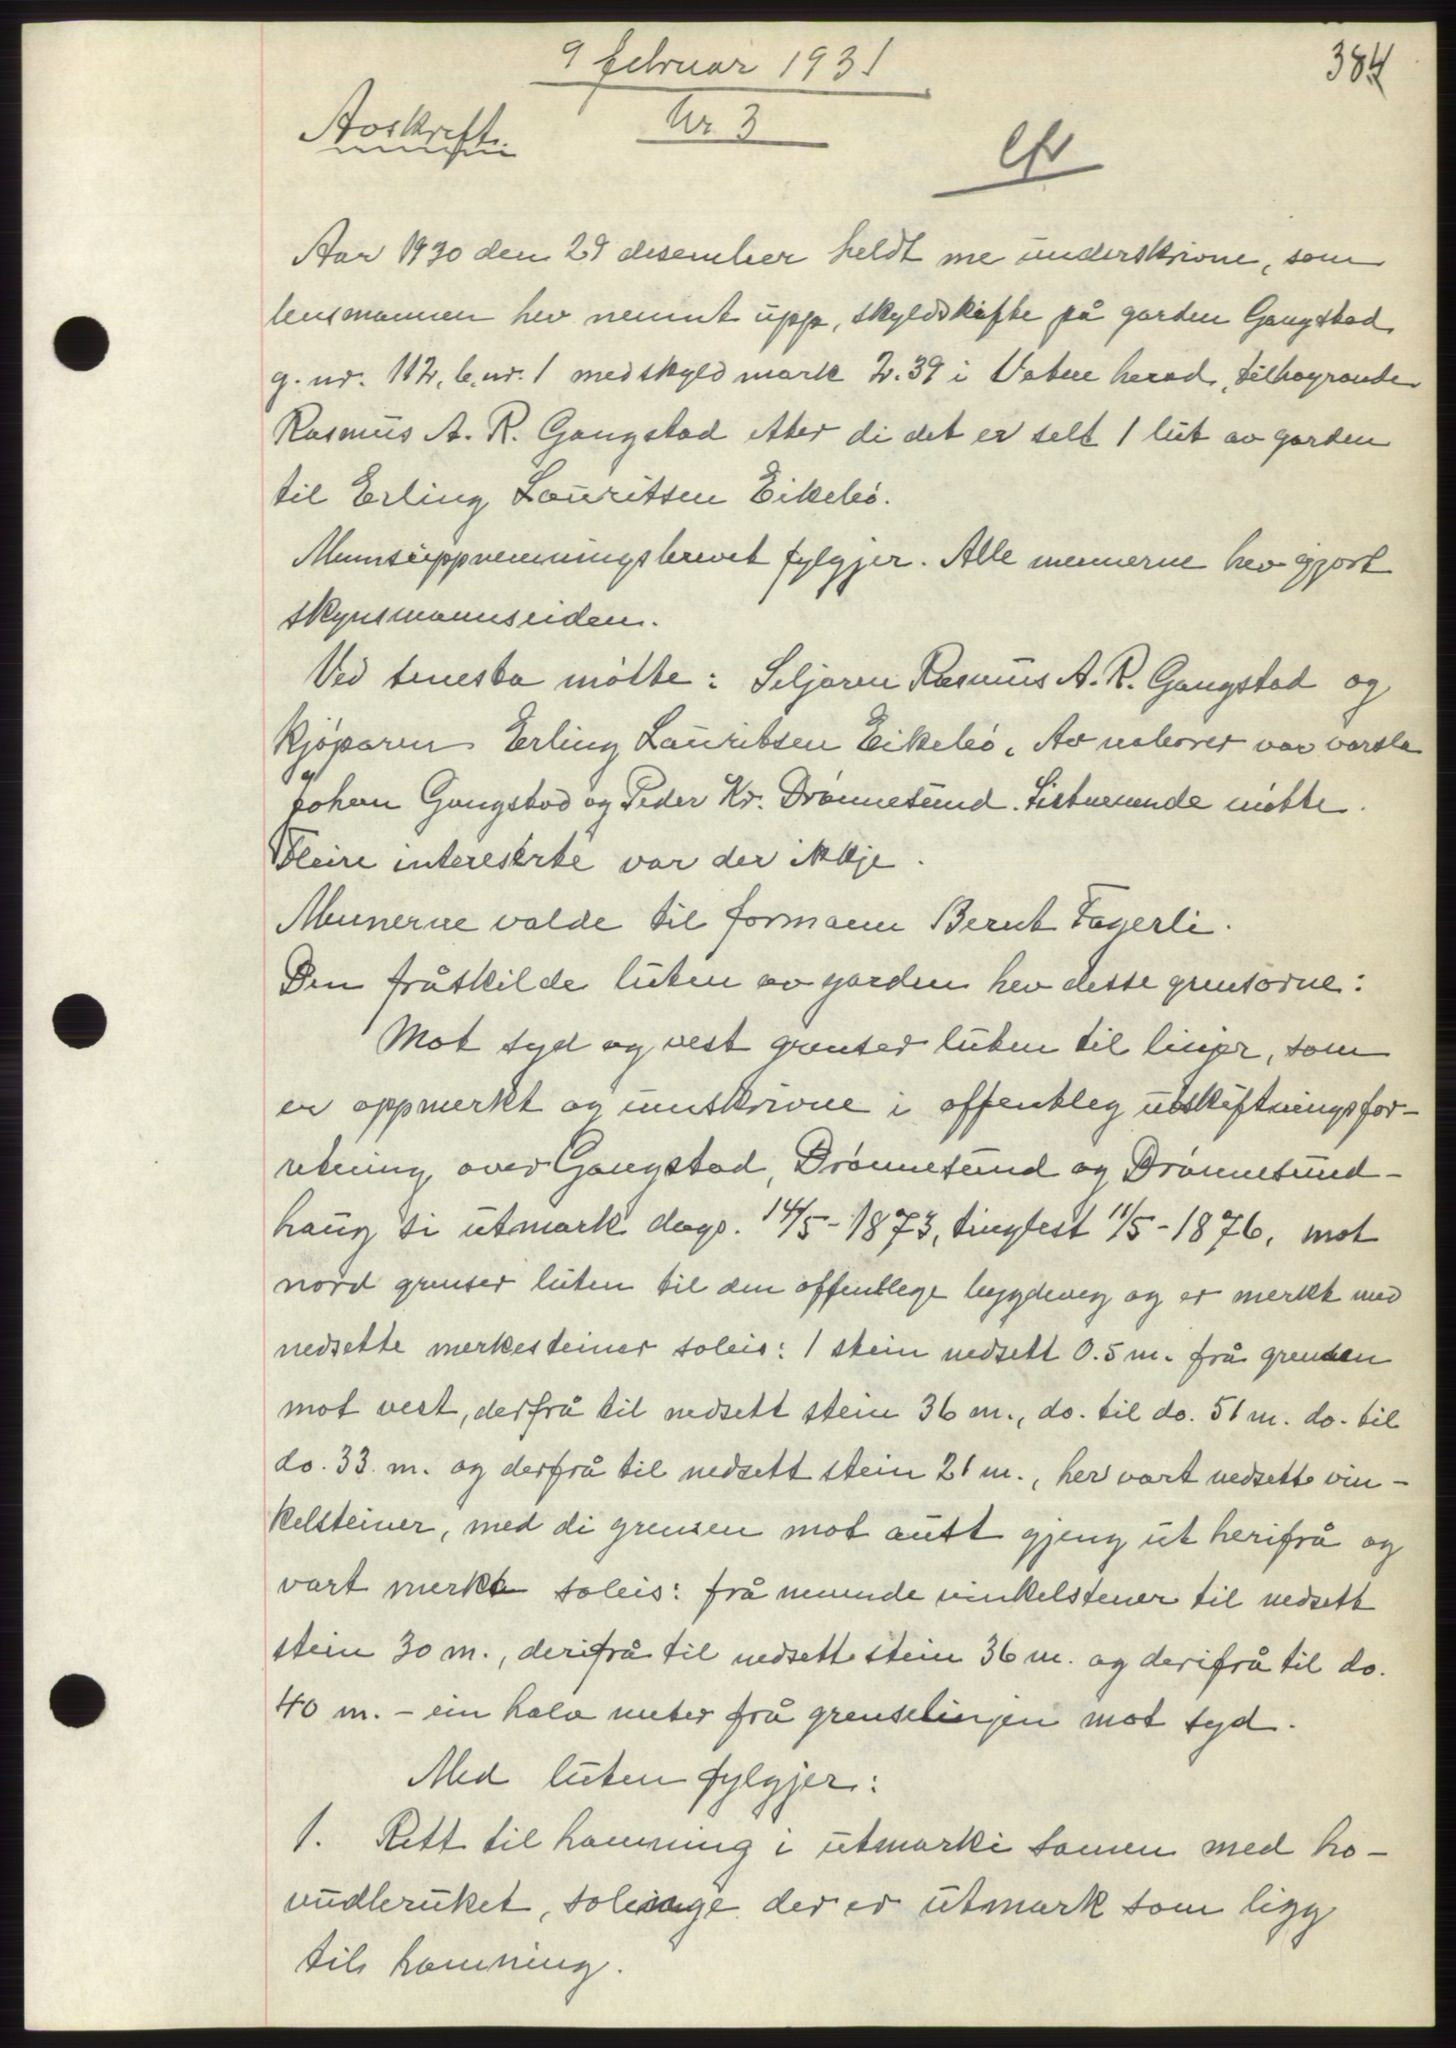 9 februar 1931
384
Avskrift.
Nr 3
Aar 1930 den 29 desember heldt me underskrivne, som
lensmannen hev nemnt upp, skyldskifte på garden Gangstad
g. nr. 112, b. nr. 1 med skyld mark 2.39 i Vatne herad, tilhøyrande
Rasmus A. R. Gangstad etter di det er selt 1 lut av garden
til Erling Lauritsen Eikebø.
Mannsuppnemningsbrevet fylgjer. Alle mennerne hev gjort
skynsmannseiden.
Ved tenesta møtte: Seljaren Rasmus A. R. Gangstad og
kjøparen Erling Lauritsen Eikebø. Av naboer var varsla
Johan Gangstad og Peder Kr. Drønnesund. Sistnemnde møtte.
Fleire intereserte var der ikkje.
Mennerne valde til formann Bernt Fagerli.
Den fråskilde luten av garden hev desse grensorne:
Mot syd og vest grenser luten til linjer, som
er oppmerkt og umskrivne i offentleg utskiftningsfor-
retning over Gangstad, Drønnesund og Drønnesund-
haug si utmark dags. 14/5-1873, tinglest 11/5-1876, mot
nord grenser luten til den offentlege bygdeveg og er merkt med
nedsette merkesteiner soleis: 1 stein nedsett 0.5 m. frå grensen
mot vest, derfrå til nedsett stein 36 m., do. til do. 51 m. do. til
do. 33. m. og derfrå til nedsett stein 21 m., her vart nedsette vin-
kelsteiner, med di grensen mot aust gjeng ut herifrå og
vart merkt soleis: frå nemnde vinkelstener til nedsett
stein 30 m., derifrå til nedsett stein 36 m. og derifrå til do.
40 m. - ein halv meter frå grenselinjen mot syd.
Med luten fylgjer:
1. Rett til hamning i utmarki saman med ho-
vudbruket, solenge der er utmark som ligg
til hamning.